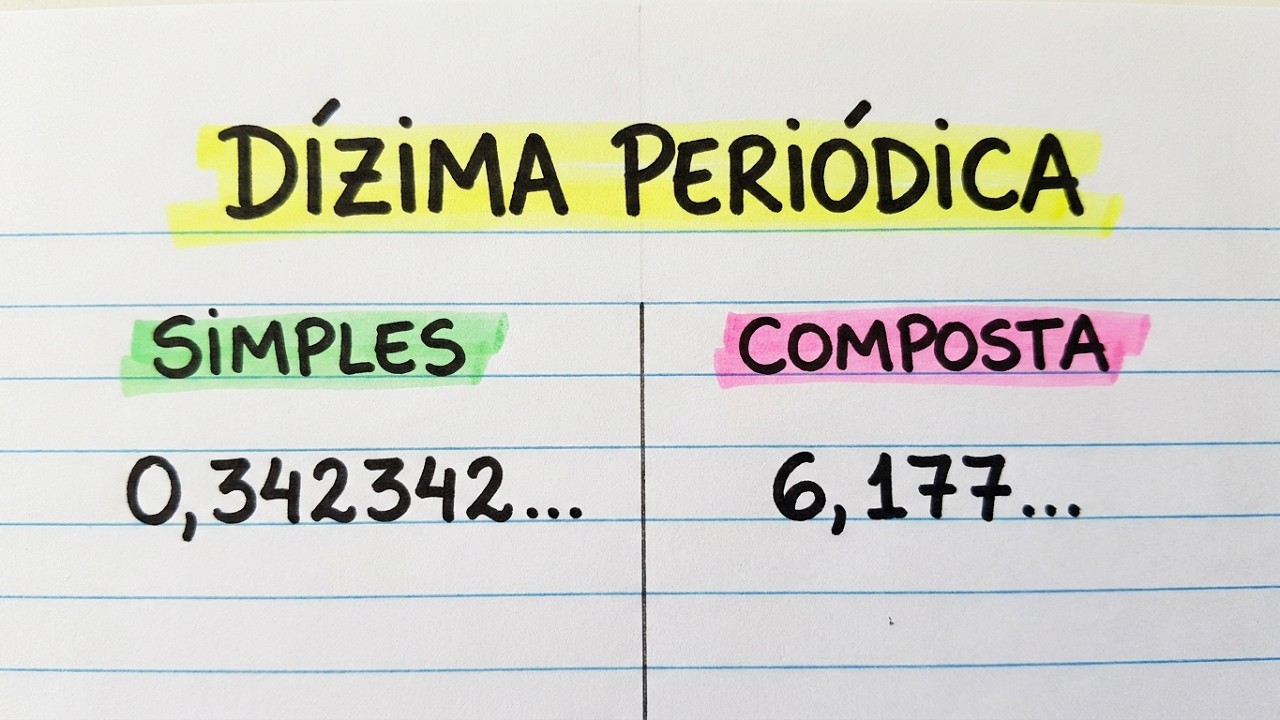 DÍZIMA PERIÓDICA
SIMPLES
COMPOSTA
0,342342...
6,177...